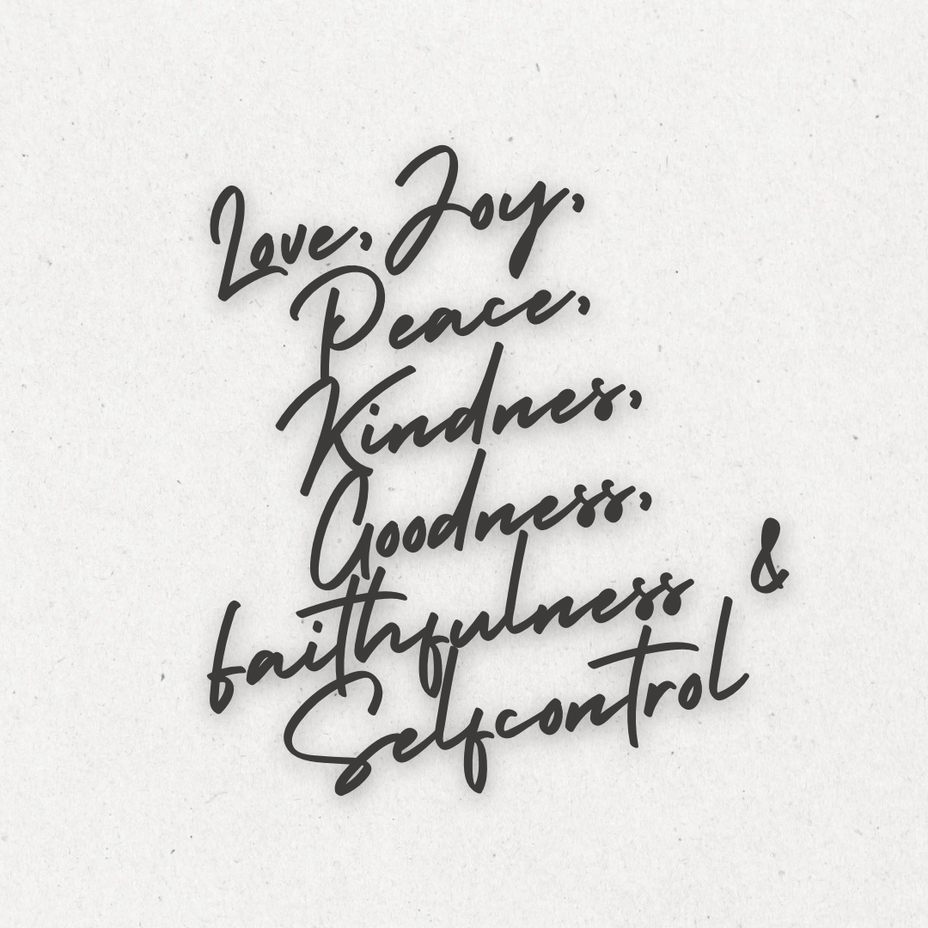 Love, Joy,
Peace,
Kindnes,
Goodness,
faithfulness &
Selfcontrol